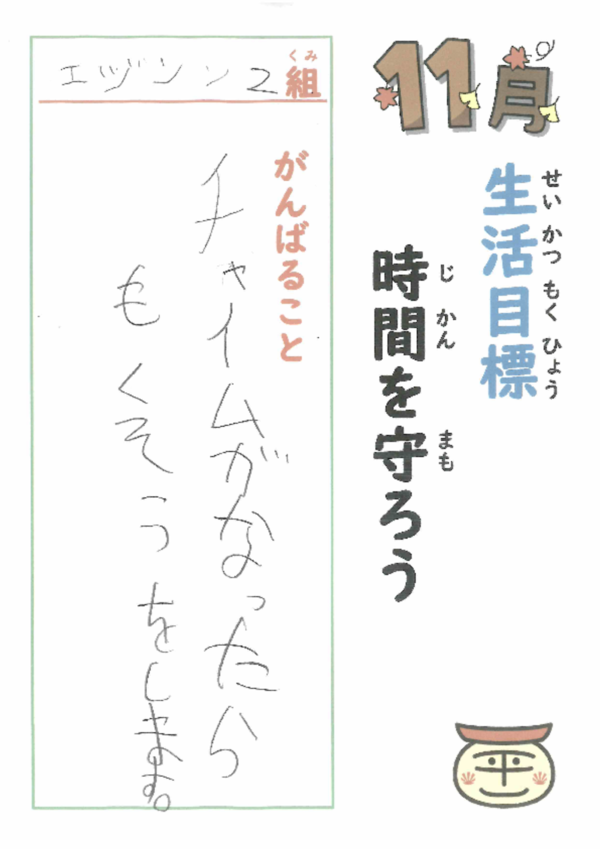 11月
せいかつもくひょう
生活目標
じかん まも
時間を守ろう
くみ
エジソン2組
がんばること
チャイムがなったら
もくそうをします。
平